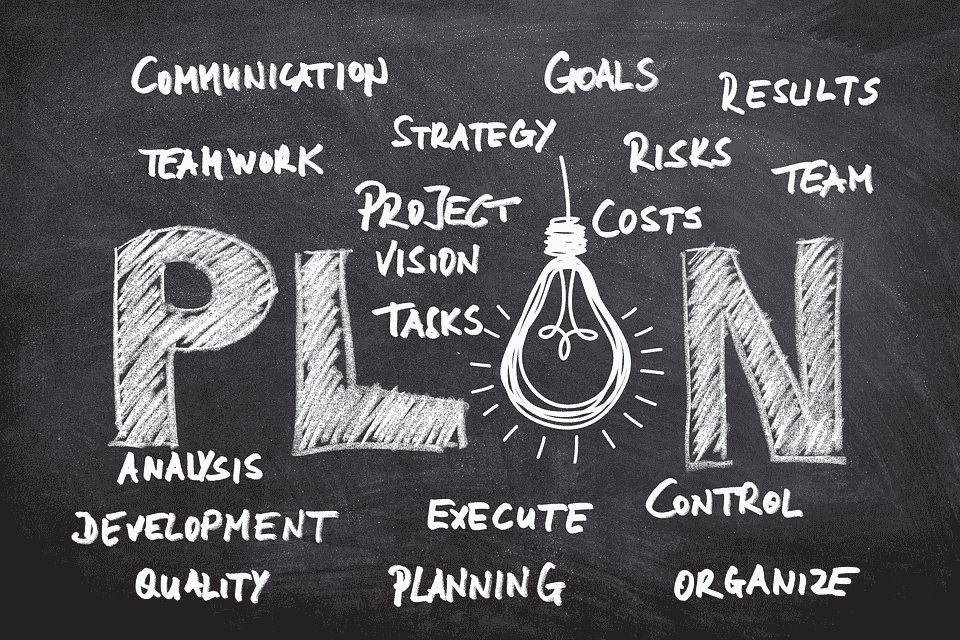 COMMUNICATION
GOALS
RESULTS
STRATEGY
TEAMWORK
RISKS
TEAM
PROJECT
COSTS
VISION
TASKS
PL N
ANALYSIS
CONTROL
DEVELOPMENT
EXECUTE
QUALITY
PLANNING
ORGANIZE